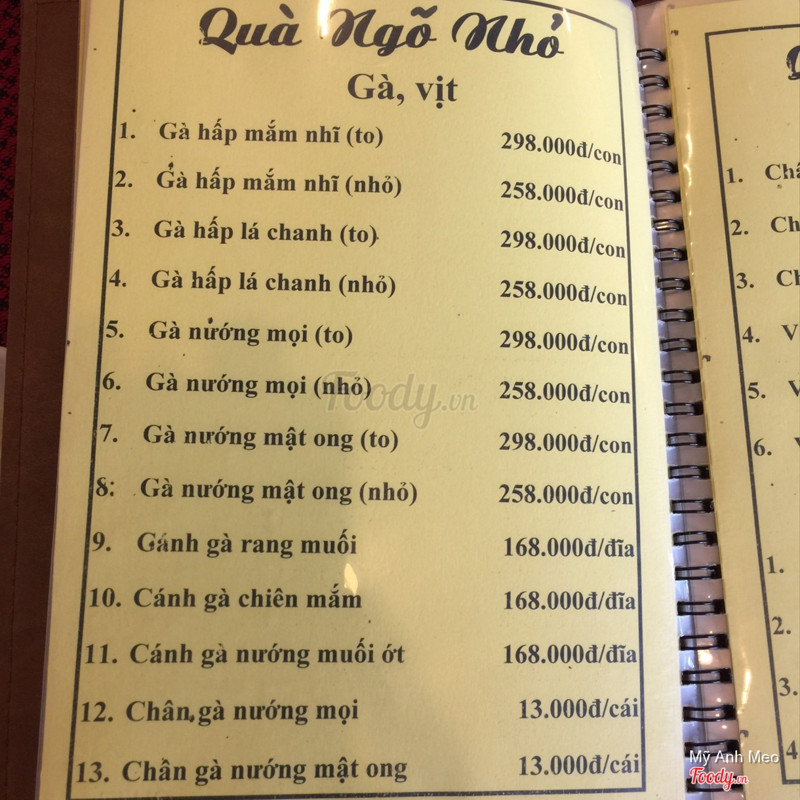 Quà Ngõ Nhỏ
Gà, vịt
1. Gà hấp mắm nhĩ (to) 298.000đ/con
2. Gà hấp mắm nhĩ (nhỏ) 258.000đ/con
3. Gà hấp lá chanh (to) 298.000đ/con
4. Gà hấp lá chanh (nhỏ) 258.000đ/con
5. Gà nướng mọi (to) 298.000đ/con
6. Gà nướng mọi (nhỏ) 258.000đ/con
7. Gà nướng mật ong (to) 298.000đ/con
8. Gà nướng mật ong (nhỏ) 258.000đ/con
9. Cánh gà rang muối 168.000đ/đĩa
10. Cánh gà chiên mắm 168.000đ/đĩa
11. Cánh gà nướng muối ớt 168.000đ/đĩa
12. Chân gà nướng mọi 13.000đ/cái
13. Chân gà nướng mật ong 13.000đ/cái
Foody.vn
1.
2.
3.
4.
5.
6.
1.
2.
3.
4.
Mỹ Anh Meo
Foody.vn